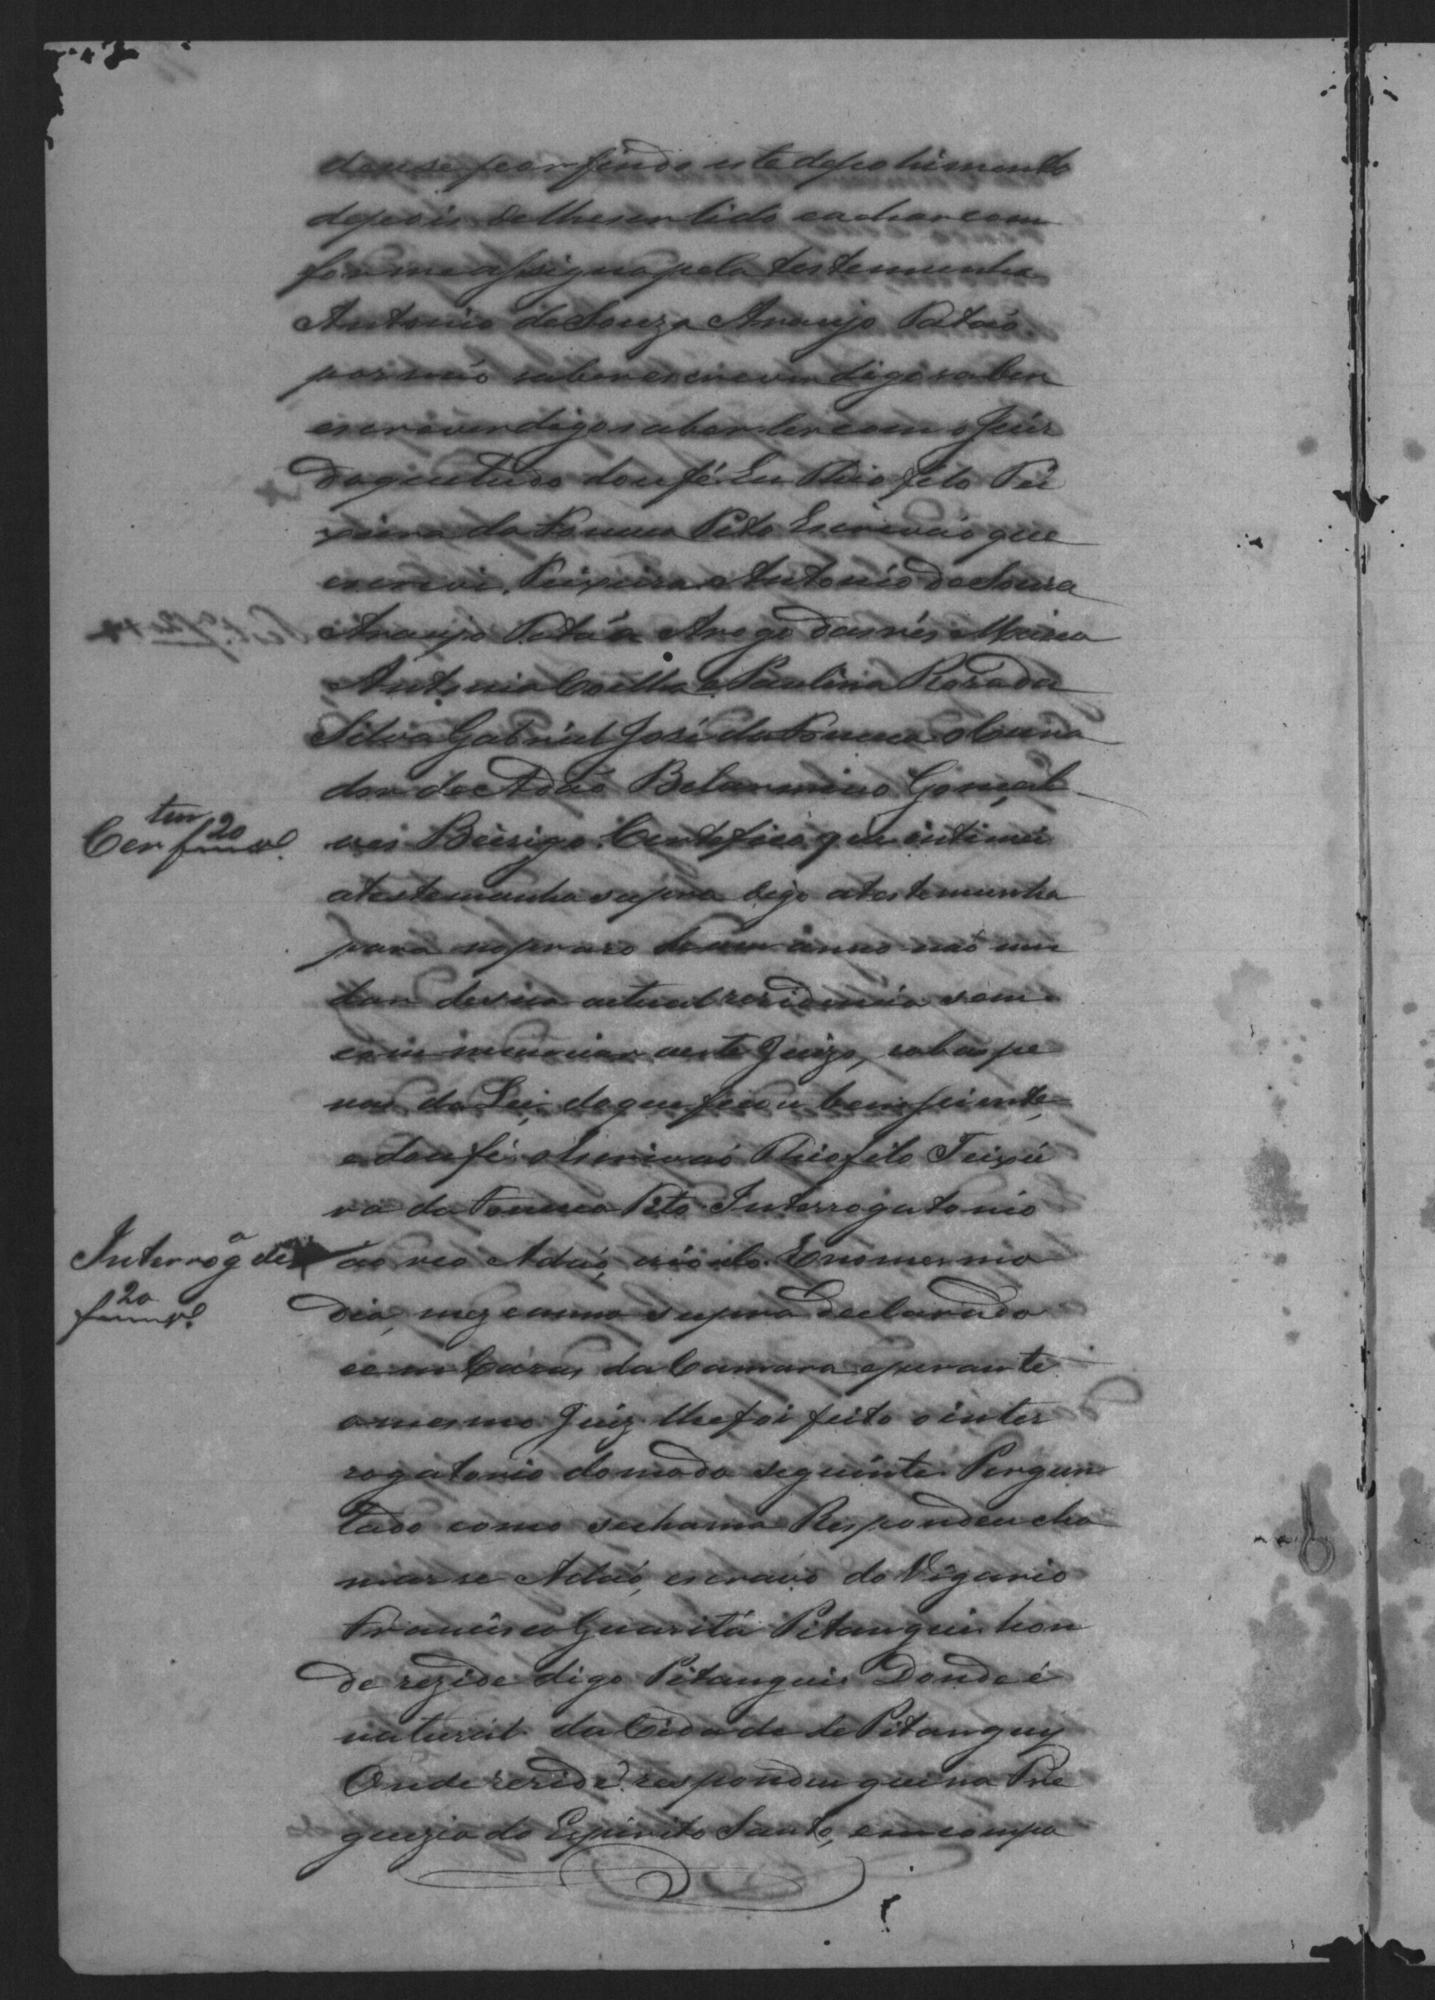 douse por findo este depohimento
depois delheser lido eachar com
forme assigna pela testemunha
Antonio de Souza Araujo Patáo
por não saber escrever digo saber
escrever digo saber ler com o Juiz
do que tudo dou fé. Eu Thiofilo Tei
xeira da Fonseca Pito Escrivão que
escrevi. Teixeira. Antonio de Souza
Araujo Patáo. Arogo das rés Maria
Antonia Coelha e Paulina Roza da
Silva Gabriel José da Fonseca o Cura
dor de Adão Belarmino Gonçal
Certm 20
ves Bizigo. Certefico que intimei
atestemunha supra digo atestemunha
para no prazo de um anno não mu
dar de sua actual rezidencia sem
communicar aeste Juizo, sob as pe
nas da Lei, do que ficou bem sciente,
e dou fé. o Escrivaõ Thiofilo Teixei
ra da Fonseca Pito. Interrogatorio
Interrogª de
20
ao reo Adaõ, crioulo. E no mesmo
dia, mez e anno supra declarado
e em Cazas da Camara e perante
o mesmo Juiz lhe foi feito o inter
rogatorio do modo seguinte. Pergun
tado como se chama Respondeu cha
marse Adaõ, escravo do Vigario
Francisco Guaritá Pitangui. hon
de rezide digo Pitangui. Donde é
natural. da Cidade de Pitanguy
Onde rezide? respondeu que na Fre
guezia do Espirito Santo, em compa